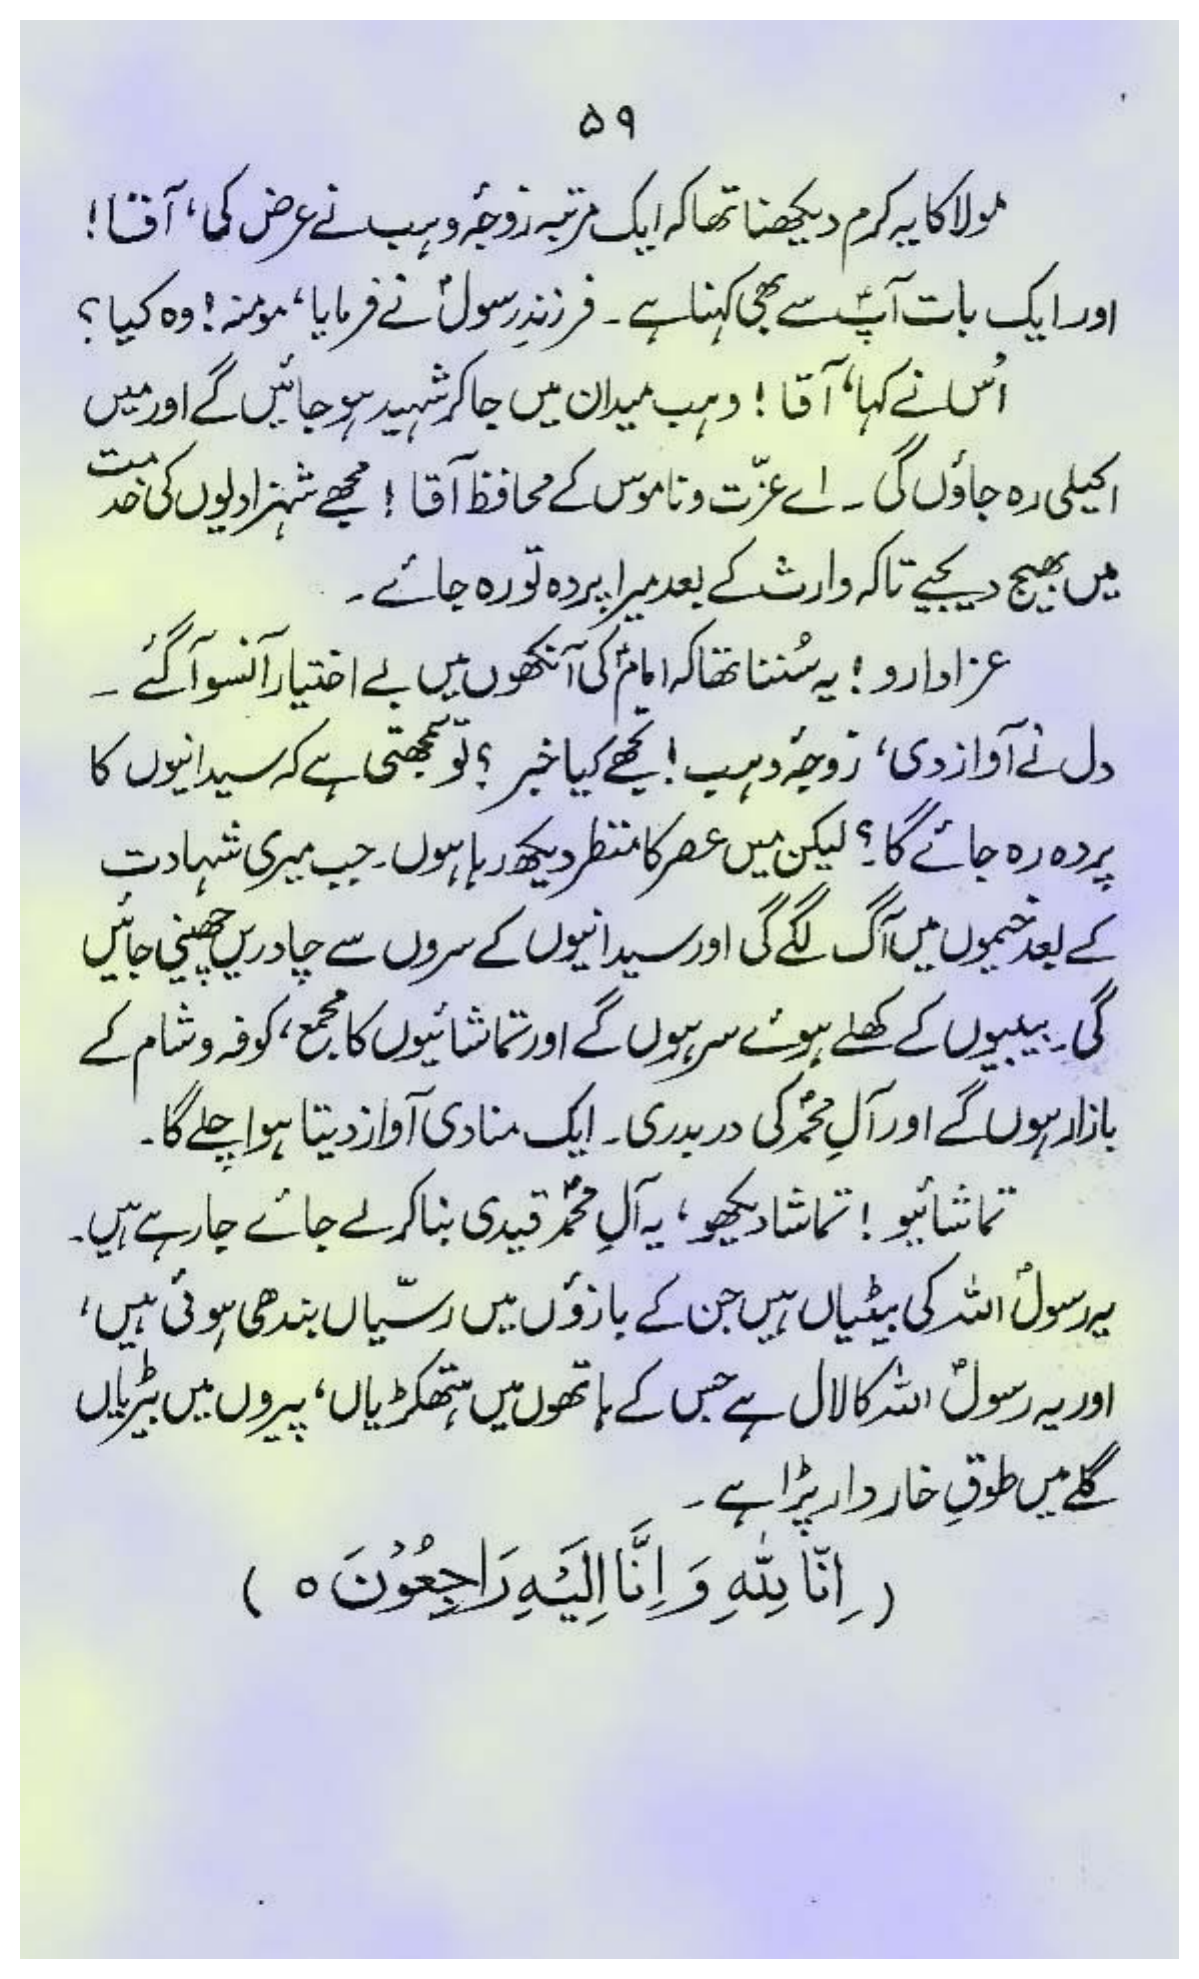 ۵۹
مولا کا یہ کرم دیکھنا تھا کہ ایک مرتبہ زوجۂ وہب نے عرض کی، آقا!
اور ایک بات آپؑ سے بھی کہنا ہے ۔ فرزندِ رسولؐ نے فرمایا، مومنہ! وہ کیا؟
اُس نے کہا، آقا! وہب میدان میں جا کر شہید ہو جائیں گے اور میں
اکیلی رہ جاؤں گی ۔ اے عزّت و ناموس کے محافظ آقا! مجھے شہزادیوں کی خدمت
میں بھیج دیجیے تاکہ وارث کے بعد میرا پردہ تو رہ جائے ۔
عزادارو! یہ سُننا تھا کہ امامؑ کی آنکھوں میں بے اختیار آنسو آگئے ۔
دل نے آواز دی، زوجۂ وہب! تجھے کیا خبر؟ تو سمجھتی ہے کہ سیدانیوں کا
پردہ رہ جائے گا؟ لیکن میں عصر کا منظر دیکھ رہا ہوں ۔ جب میری شہادت
کے بعد خیموں میں آگ لگے گی اور سیدانیوں کے سروں سے چادریں چھینی جائیں
گی ۔ بیبیوں کے کھلے ہوئے سر ہوں گے اور تماشائیوں کا مجمع، کوفہ و شام کے
بازار ہوں گے اور آلِ محمدؐ کی در بدری ۔ ایک منادی آواز دیتا ہوا چلے گا ۔
تماشائیو! تماشا دیکھو، یہ آلِ محمدؐ قیدی بنا کر لے جائے جا رہے ہیں ۔
یہ رسولؐ اللہ کی بیٹیاں ہیں جن کے بازوؤں میں رسّیاں بندھی ہوئی ہیں،
اور یہ رسولؐ اللہ کا لال ہے جس کے ہاتھوں میں ہتھکڑیاں، پیروں میں بیڑیاں
گلے میں طوقِ خاردار پڑا ہے ۔
( اِنَّا لِلّٰهِ وَ اِنَّا اِلَيْهِ رَاجِعُوْنَ ٥ )